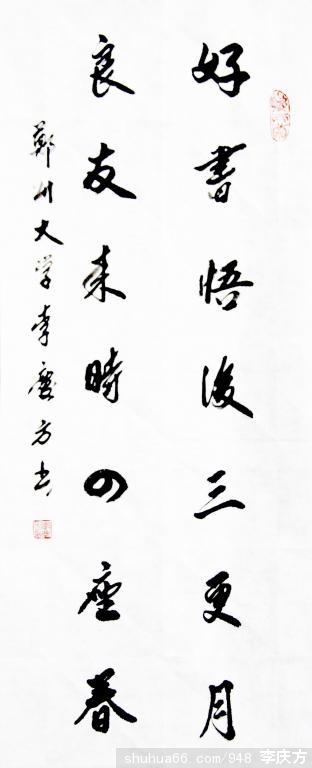 好書悟後三更月
良友来時四座春
鄭州大学李慶方书
shuhua66.com/948 李庆方